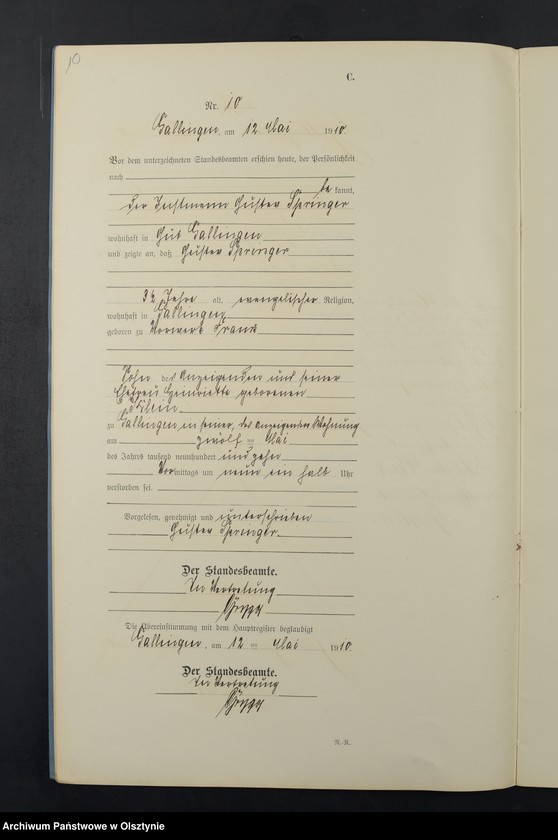 10
C.
Nr. 10
Gallingen, am 12. Mai 1910
Vor dem unterzeichneten Standesbeamten erschien heute, der Persönlichkeit
nach
be kannt,
der Instmann Gustav Springer
wohnhaft in Gut Gallingen
und zeigte an, daß Gustav Springer
32 Jahre alt, evangelischer Religion,
wohnhaft in Gallingen
geboren zu Vorwerk
Sohn des Anzeigenden und seiner
Ehefrau Henriette geborenen
Klein
zu Gallingen in seiner, des Anzeigenden Wohnung
am zwölf ten Mai
des Jahres tausend neunhundert und zehn
Vormittags um neun ein halb Uhr
verstorben sei.
Vorgelesen, genehmigt und unterschrieben
Gustav Springer
Der Standesbeamte.
In Vertretung
Die Übereinstimmung mit dem Hauptregister beglaubigt
Gallingen, am 12 ten Mai 1910.
Der Standesbeamte.
In Vertretung
A.-R.
Archiwum Państwowe w Olsztynie